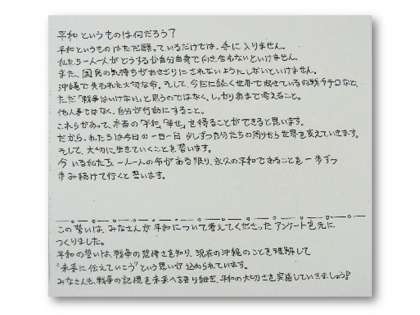 平和というものは何だろう？
平和というものはただ願っているだけでは、手に入りません。
私たち一人一人がどうするか自分自身で向き合わないといけません。
また、国民の気持ちがおきざりにされないようにしないといけません。
沖縄で失われた大切な命。そして、今だに続く世界で起きている戦争テロなど、
ただ「戦争はいけない」と思うのではなく、しっかりあまで考えること。
他人事ではなく、自分が行動にすること。
これらがあって、本当の「平和」「幸せ」を得ることができると思います。
だから、わたしたちは今日の一日一日 少しずつ自分たちの周りから世界を変えていきます。
そして、大切に生きていくことを誓います。
今いる私たち一人一人の命がある限り、永久の平和であることを一歩ずつ
歩み続けて行くと誓います。
この誓いは、みなさんが平和について考えてくださった アンケートを元に
つくりました。
平和の誓いは、戦争の悲惨さを知り、現在の沖縄のことを理解して
"未来に伝えていこう"という思いが込められています。
みなさんも、戦争の記憶を未来へ語り継ぎ、平和の大切さを実感していきましょう!